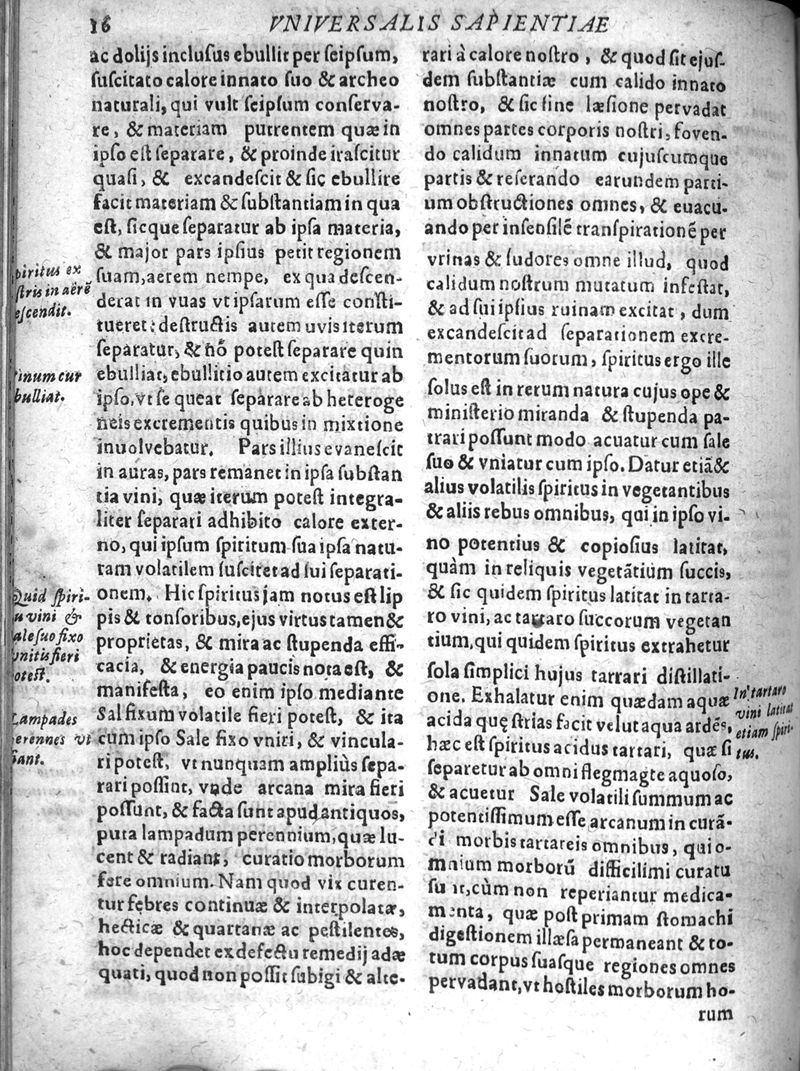 16 VNIVERSALIS SAPIENTIAE
ac dolijs inclusus ebullit per seipsum,
suscitato calore innato suo & archeo
naturali, qui vult seipsum conserva-
re, & materiam putrentem quæ in
ipso est separare, & proinde irascitur
quasi, & excandescit & sic ebullire
facit materiam & substantiam in qua
est, sicque separatur ab ipsa materia,
& major pars ipsius petit regionem
suam, aerem nempe, ex qua descen-
derat in vuas vt ipsarum esse consti-
tueret: destructis autem uvis iterum
separatur, & nõ potest separare quin
ebulliat, ebullitio autem excitatur ab
ipso, vt se queat separare ab heteroge
neis excrementis quibus in mixtione
inuolvebatur. Pars illius evanescit
in auras, pars remanet in ipsa substan
tia vini, quæ iterum potest integra-
liter separari adhibito calore exter-
no, qui ipsum spiritum sua ipsa natu-
ram volatilem suscitet ad sui separati-
onem. Hic spiritus jam notus est lip
pis & tonsoribus, ejus virtus tamen &
proprietas, & mira ac stupenda effi-
cacia, & energia paucis nota est, &
manifesta, eo enim ipso mediante
Sal fixum volatile fieri potest, & ita
cum ipso Sale fixo vniri, & vincula-
ri potest, vt nunquam ampliùs sepa-
rari possint, vnde arcana mira fieri
possunt, & facta sunt apud antiquos,
puta lampadum perennium, quæ lu-
cent & radiant, curatio morborum
fere omnium. Nam quod vix curen-
tur febres continuæ & interpolatæ,
hecticæ & quartanæ ac pestilentes,
hoc dependet ex defectu remedij adæ
quati, quod non possit subigi & alte-
piritus ex
stris in aëre
escendit.
inum cur
bulliat.
Quid spiri-
u vini &
ale suo fixo
vnitus fieri
otest.
Lampades
erennes vt
iant.
rari à calore nostro, & quod sit ejus-
dem substantiæ cum calido innato
nostro, & sic sine læsione pervadat
omnes partes corporis nostri, foven-
do calidum innatum cujuscumque
partis & referando earundem parti-
um obstructiones omnes, & euacu-
ando per insensilẽ transpirationẽ per
vrinas & sudores omne illud, quod
calidum nostrum mutatum infestat,
& ad sui ipsius ruinam excitat, dum
excandescit ad separationem excre-
mentorum suorum, spiritus ergo ille
solus est in rerum natura cujus ope &
ministerio miranda & stupenda pa-
trari possunt modo acuatur cum sale
suo & vniatur cum ipso. Datur etiã &
alius volatilis spiritus in vegetantibus
& aliis rebus omnibus, qui in ipso vi-
no potentius & copiosius latitat,
quàm in reliquis vegetãtium succis,
& sic quidem spiritus latitat in tarta-
ro vini, ac tartaro succorum vegetan
tium, qui quidem spiritus extrahetur
sola simplici hujus tarrari distillati-
one. Exhalatur enim quædam aquæ
acida quę strias facit velut aqua ardẽs,
hæc est spiritus acidus tartari, quæ si
separetur ab omni flegmagte aquoso,
& acuetur Sale volatili summum ac
potentissimum esse arcanum in curã-
di morbis tartareis omnibus, qui o-
mnium morborũ difficilimi curatu
su it, cùm non reperiantur medica-
menta, quæ post primam stomachi
digestionem illæsa permaneant & to-
tum corpus suasque regiones omnes
pervadant, vt hostiles morborum ho-
rum
In tartaro
vini latitat
etiam spiri-
tus.